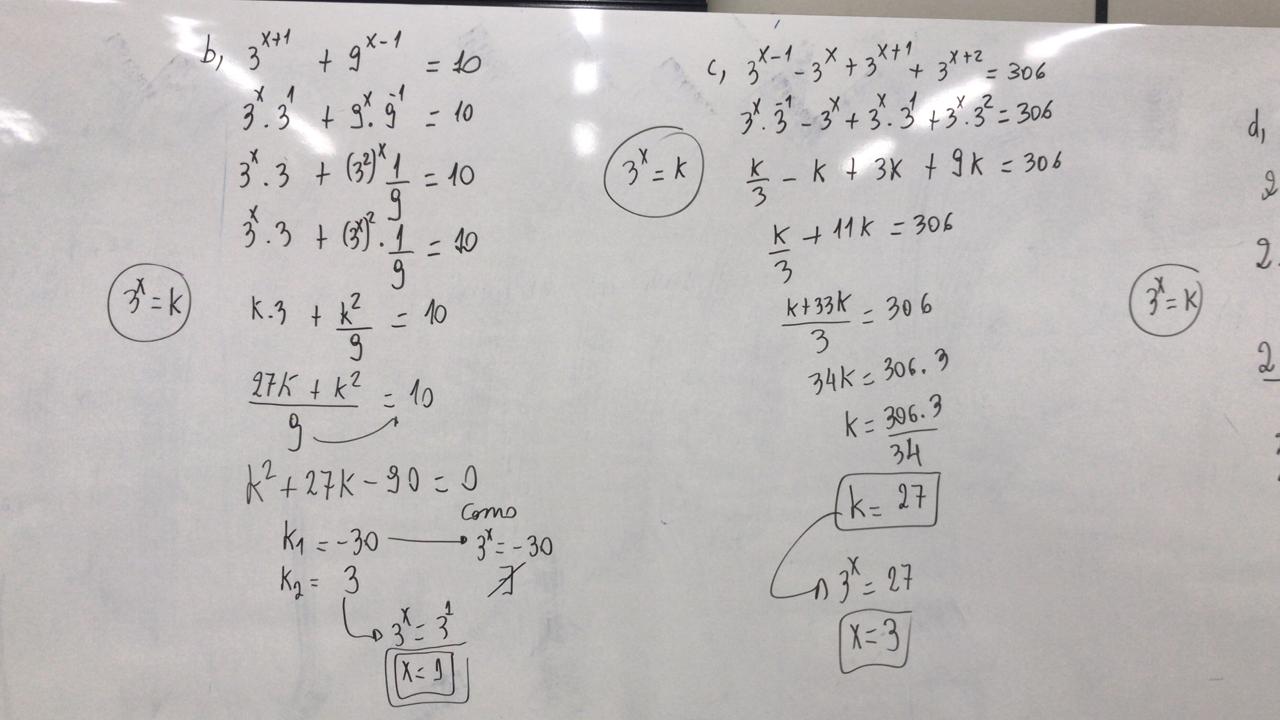 b, 3^(x+1) + 9^(x-1) = 10
3^x . 3^1 + 9^x . 9^-1 = 10
3^x . 3 + (3^2)^x 1/9 = 10
3^x . 3 + (3^x)^2 . 1/9 = 10
3^x = k
k.3 + k^2/9 = 10
(27k + k^2)/9 = 10
k^2 + 27k - 90 = 0
Como
k1 = -30 → 3^x = -30
k2 = 3 ∄
3^x = 3^1
x = 1
c, 3^(x-1) - 3^x + 3^(x+1) + 3^(x+2) = 306
3^x . 3^-1 - 3^x + 3^x . 3^1 + 3^x . 3^2 = 306
3^x = k
k/3 - k + 3k + 9k = 306
k/3 + 11k = 306
(k+33k)/3 = 306
34k = 306.3
k = 306.3/34
k = 27
3^x = 27
x = 3
d,
2
2.
3^x = k
2